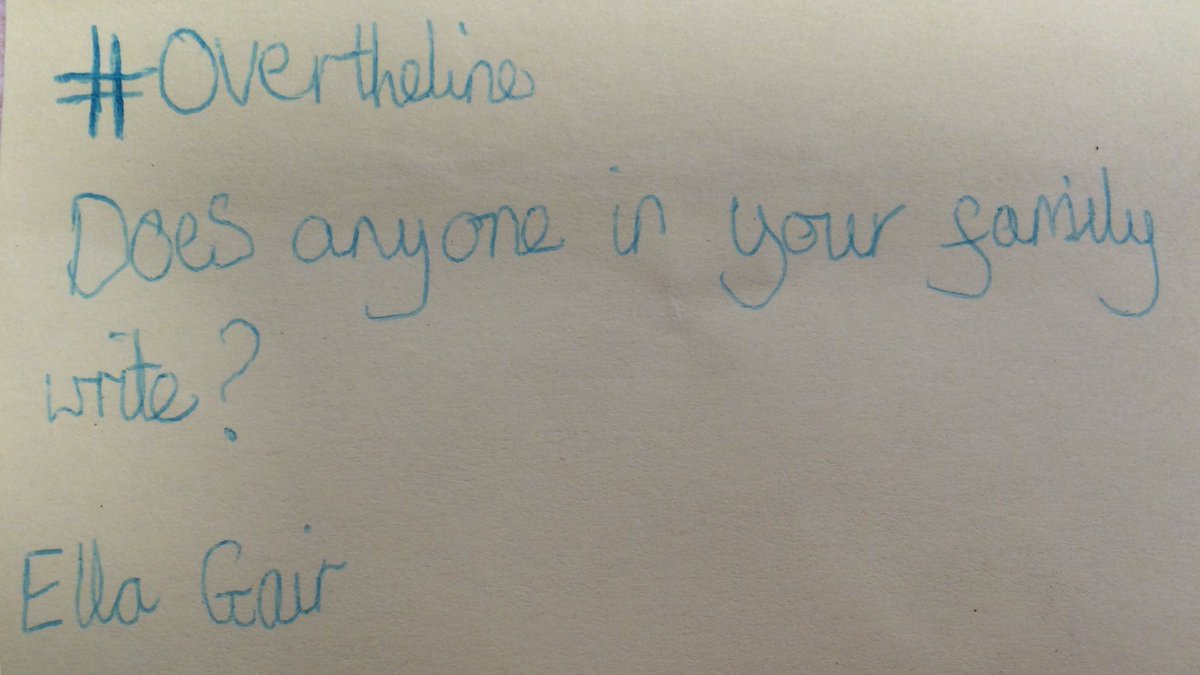 #Overtheline
Does anyone in your family
write?
Ella Gair